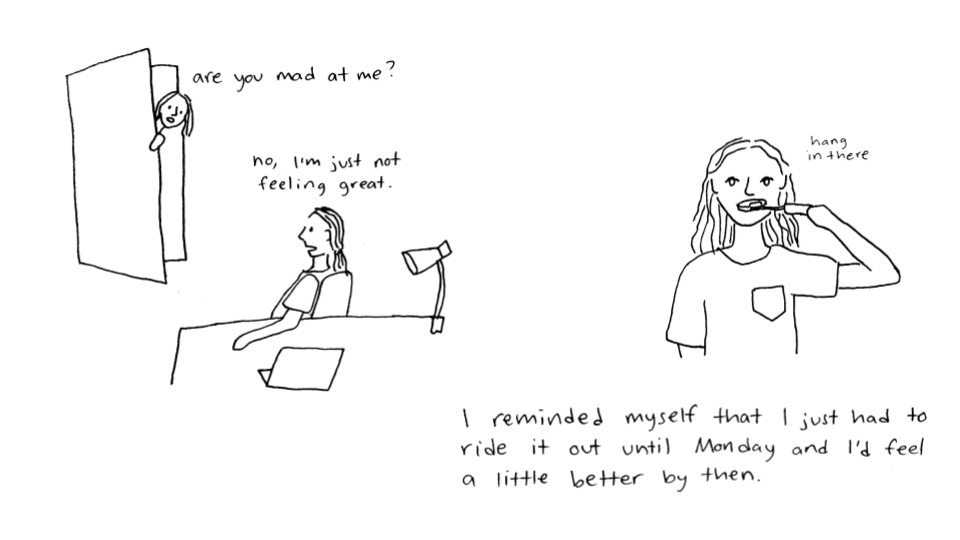 are you mad at me?
no, I'm just not
feeling great.
hang
in there
I reminded myself that I just had to
ride it out until Monday and I'd feel
a little better by then.